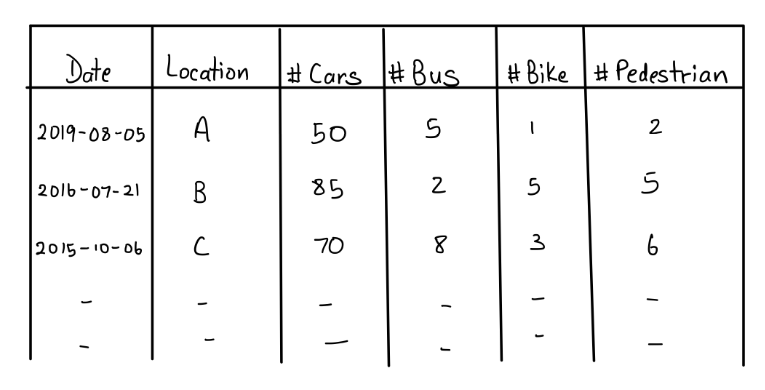 Date Location # Cars # Bus # Bike # Pedestrian
2019-08-05 A 50 5 1 2
2016-07-21 B 85 2 5 5
2015-10-06 C 70 8 3 6
- - - - - -
- - - - - -